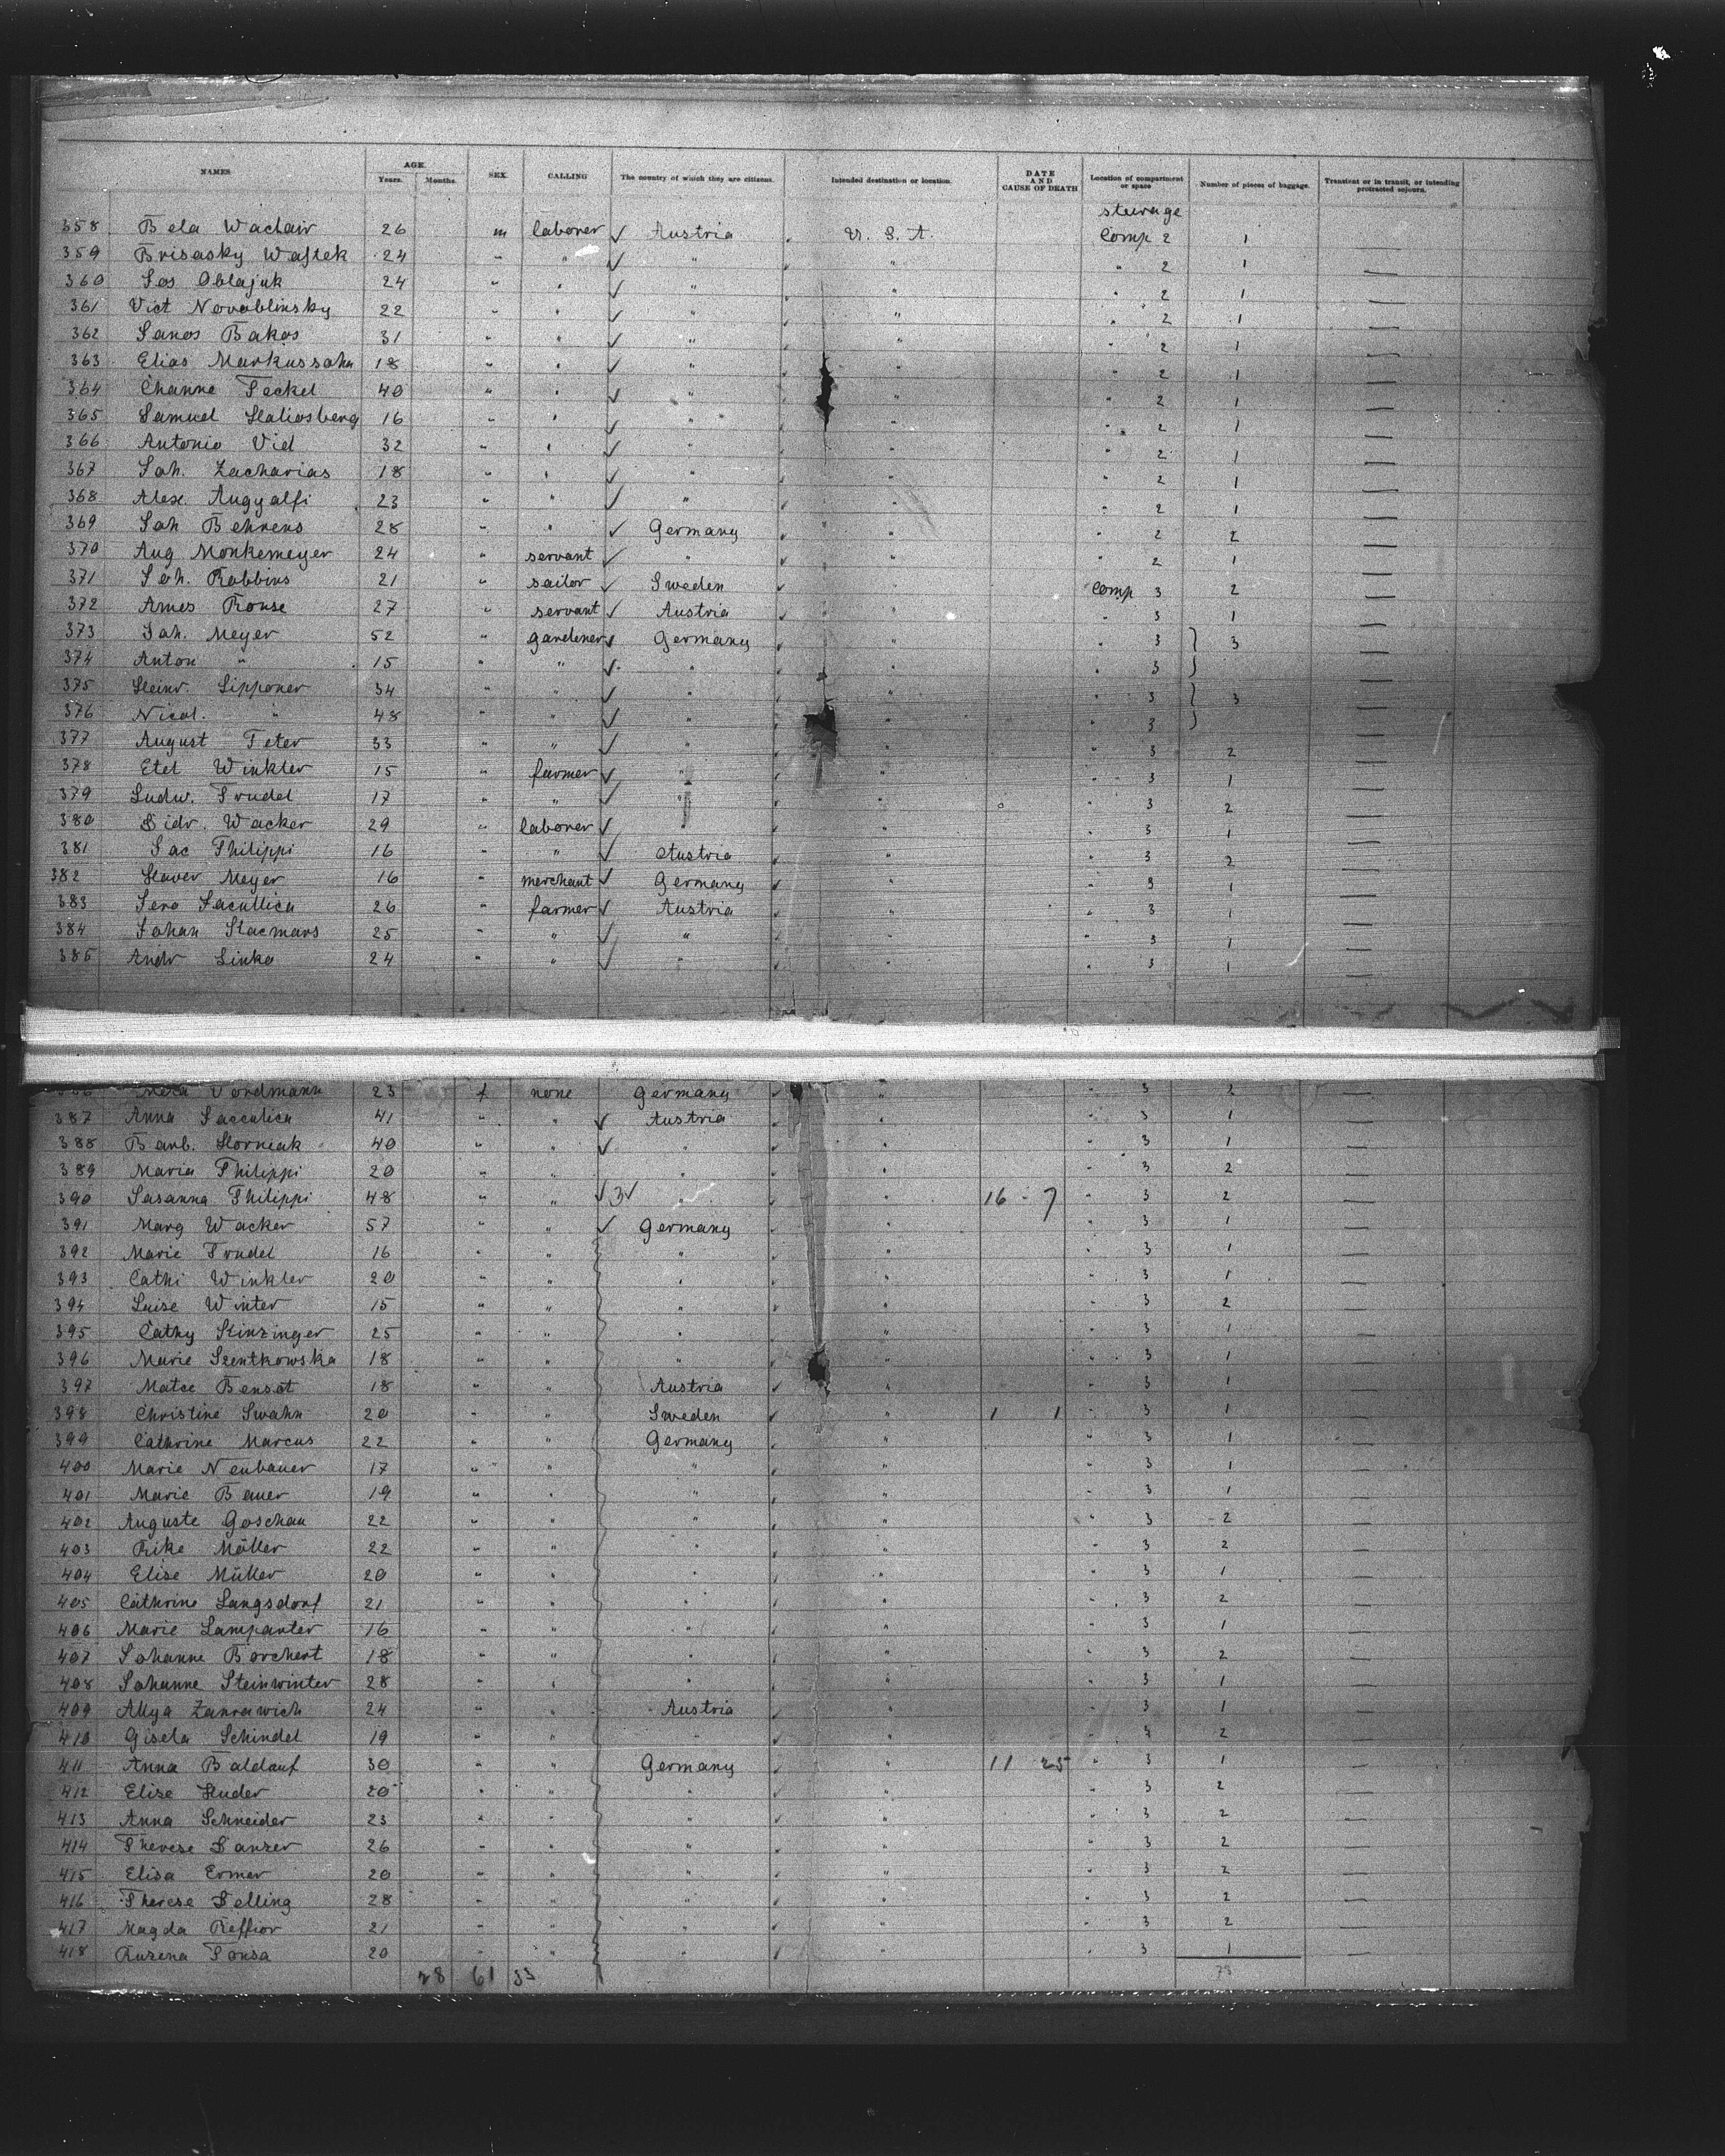 NAMES AGE. Years. Months. SEX. CALLING The country of which they are citizens. Intended destination or location. DATE AND CAUSE OF DEATH Location of compartment or space Number of pieces of baggage. Transient or in transit, or intending protracted sojourn.
steerage
358 Bela Waclair 26 m laborer ✓ Austria U. S. A. Comp 2 1
359 Brisasky Wajtek 24 " " ✓ " " " 2 1 —
360 Jos Oblajuk 24 " " ✓ " " " 2 1 —
361 Vict Novoblinsky 22 " " ✓ " " " 2 1 —
362 Janos Bakos 31 " " ✓ " " " 2 1 —
363 Elias Markussohn 18 " " ✓ " " " 2 1 —
364 Channe Feckel 40 " " ✓ " " " 2 1 —
365 Samuel Haliosberg 16 " " ✓ " " " 2 1 —
366 Antonio Vid 32 " " ✓ " " " 2 1 —
367 Joh. Zacharias 18 " " ✓ " " " 2 1 —
368 Alex. Augyalfi 23 " " ✓ " " " 2 1 —
369 Joh Behrens 28 " " ✓ Germany " " 2 2 —
370 Aug Monkemeyer 24 " servant ✓ " " " 2 1 —
371 Joh. Robbins 21 " sailor ✓ Sweden " Comp 3 2 —
372 Arnes Rouse 27 " servant ✓ Austria " " 3 1 —
373 Joh. Meyer 52 " gardener ✓ Germany " " 3 } 3 —
374 Anton " 15 " " ✓ " " " 3 } —
375 Heinr. Lipponer 34 " " ✓ " " " 3 } 3 —
376 Nicol. " 48 " " ✓ " " " 3 } —
377 August Peter 33 " " ✓ " " " 3 2 —
378 Etel Winkler 15 " farmer ✓ " " " 3 1 —
379 Ludw. Trudel 17 " " ✓ " " " 3 2 —
380 Sidr. Wacker 29 " laborer ✓ " " " 3 1 —
381 Jac Philippi 16 " " ✓ Austria " " 3 2 —
382 Xaver Meyer 16 " merchant ✓ Germany " " 3 1 —
383 Jero Jacullica 26 " farmer ✓ Austria " " 3 1 —
384 Johan Kacmars 25 " " ✓ " " " 3 1 —
385 Andr Linka 24 " " ✓ " " " 3 1 —
386 Meta Vordmann 23 f none Germany " " 3 2
387 Anna Jacculica 41 " " ✓ Austria " " 3 1 —
388 Barb. Horniak 40 " " ✓ " " " 3 1 —
389 Maria Philippi 20 " " " " " 3 2 —
390 Susanna Philippi 48 " " ✓ 3 ✓ " " 16 - 7 " 3 2 —
391 Marg Wacker 57 " " ✓ Germany " " 3 1 —
392 Marie Trudel 16 " " " " " 3 1 —
393 Cathi Winkler 20 " " " " " 3 1 —
394 Luise Winter 15 " " " " " 3 2 —
395 Cathy Kinzinger 25 " " " " " 3 1 —
396 Marie Szentkowska 18 " " " " " 3 1 —
397 Matse Bensot 18 " " Austria " " 3 1 —
398 Christine Swahn 20 " " Sweden " 1 1 " 3 1 —
399 Cathrine Marcus 22 " " Germany " " 3 1 —
400 Marie Neubauer 17 " " " " " 3 1 —
401 Marie Bauer 19 " " " " " 3 1 —
402 Auguste Goschau 22 " " " " " 3 2 —
403 Rike Möller 22 " " " " " 3 2 —
404 Elise Müller 20 " " " " " 3 1 —
405 Cathrine Langsdorf 21 " " " " " 3 2 —
406 Marie Lampanter 16 " " " " " 3 1 —
407 Johanne Borchert 18 " " " " " 3 2 —
408 Johanne Steinwinter 28 " " " " " 3 1 —
409 Allya Zanrawich 24 " " Austria " " 3 1 —
410 Gisela Schindel 19 " " " " " 3 2 —
411 Anna Baldauf 30 " " Germany " 11 25 " 3 1 —
412 Elise Huder 20 " " " " " 3 2 —
413 Anna Schneider 23 " " " " " 3 2 —
414 Therese Danzer 26 " " " " " 3 2 —
415 Elisa Ermer 20 " " " " " 3 2 —
416 Therese Delling 28 " " " " " 3 2 —
417 Magda Reffior 21 " " " " " 3 2 —
418 Ruzena Fousa 20 " " " " " 3 1 —
28 61 33 78